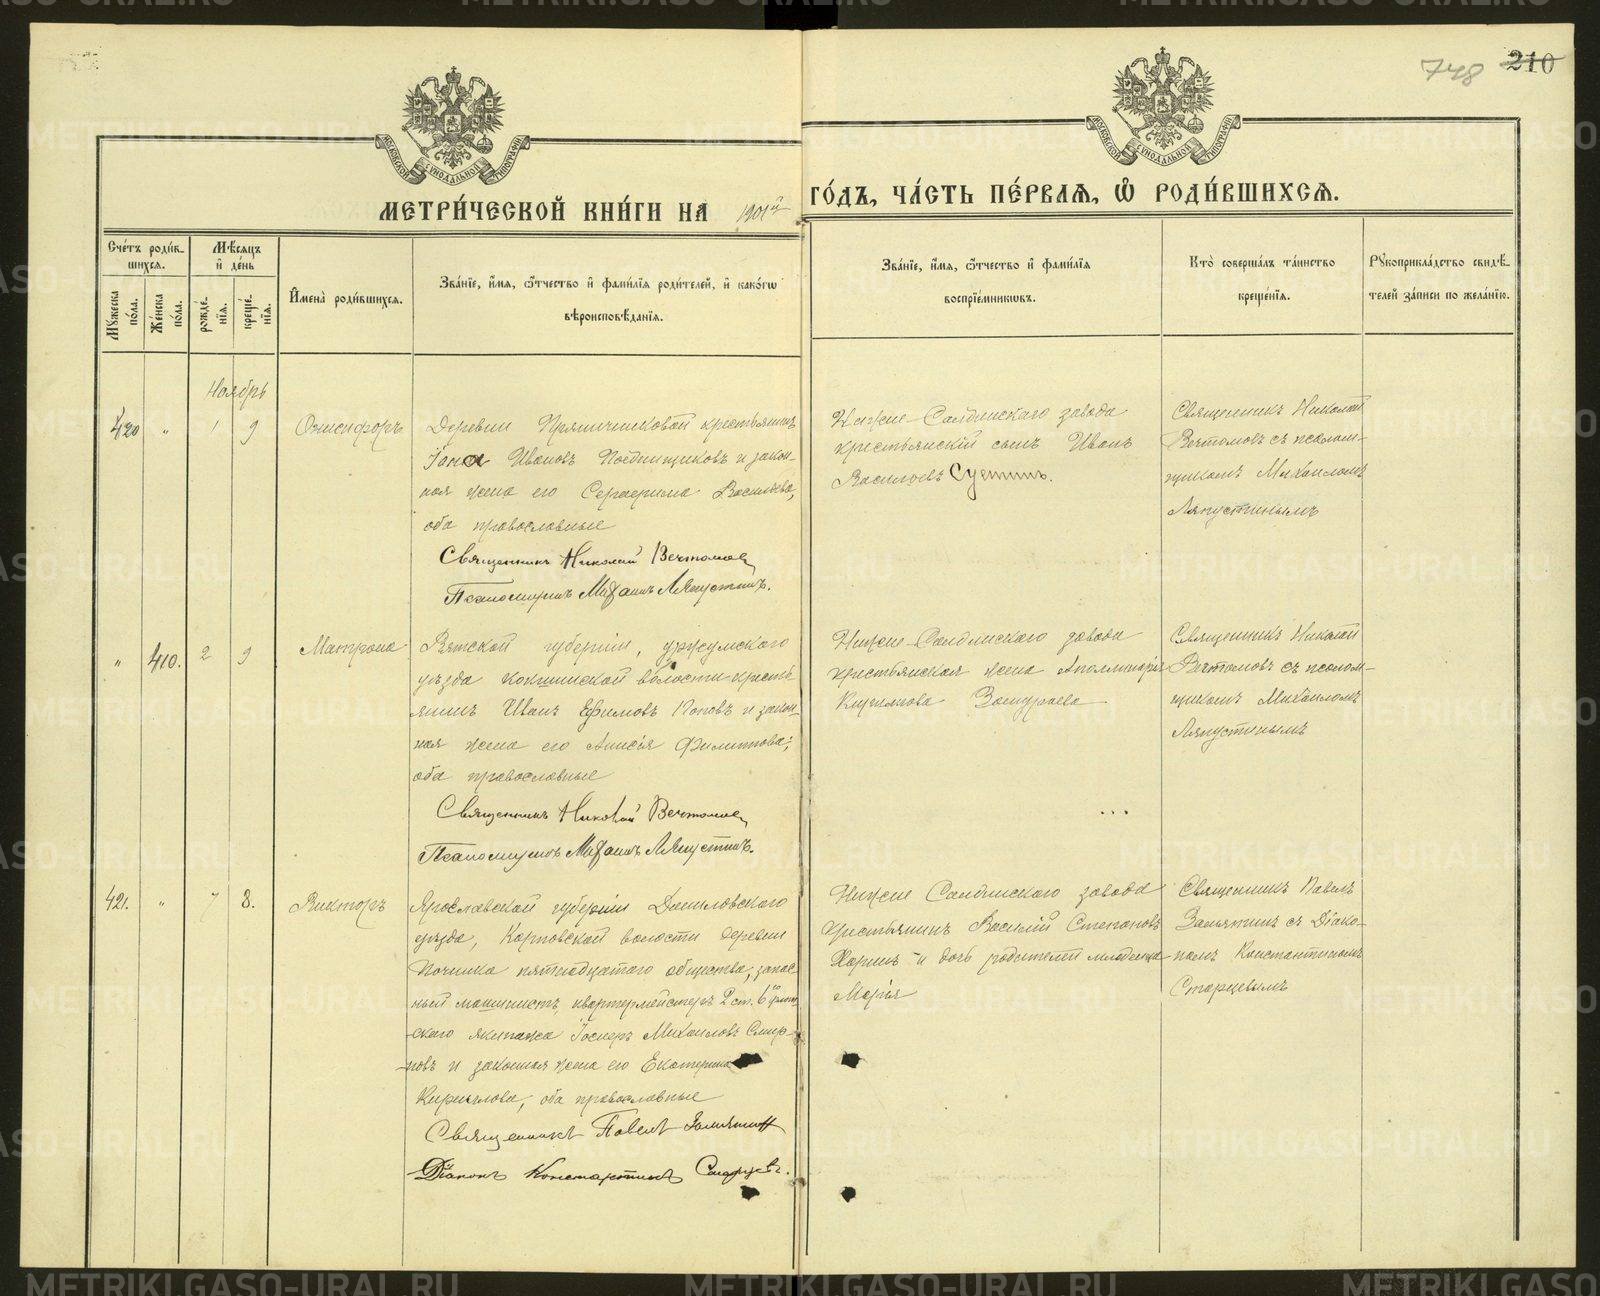 748 210
МОСКОВСКОЙ СѴНОДАЛЬНОЙ ТИПОГРАФІИ
МОСКОВСКОЙ СѴНОДАЛЬНОЙ ТИПОГРАФІИ
МЕТРИ́ЧЕСКОЙ КНИ́ГИ НА 1901й ГО́ДЪ, ЧА́СТЬ ПЕ́РВАѦ, Ѡ РОДИ́ВШИХСѦ.
Сче́тъ роди́в-
шихся.
Му́жеска по́ла.
Же́нска по́ла.
Мѣ́сяцъ
и де́нь
рожде́-
нія.
креще́-
нія.
Имена̀ роди́вшихся.
Зва́ніе, и́мя, ѻ́тчество и фами́лія роди́телей, и како́гѡ
вѣроисповѣ́данія.
Зва́ніе, и́мя, ѻ́тчество и фами́лія
воспріе́мниковъ.
Кто̀ соверша́лъ та́инство
креще́нія.
Рукоприкла́дство свидѣ́-
телей за́писи по жела́нію.
Ноябрь
420 " 1 9
Онисифоръ
Деревни Прянишниковой крестьянинъ
Иванов и закон-
ная жена его Серафима Васильева,
оба православные
Священникъ Николай Вечтомов
Псаломщикъ Михаилъ Ляпустинъ.
Нижне-Салдинскаго завода
крестьянскій сынъ Иванъ
Васильевъ Суетинъ.
Священникъ Николай
Вечтомовъ съ псалом-
щикомъ Михаиломъ
Ляпустинымъ
" 410. 2 9
Матрона
Вятской губерніи, уржумскаго
уѣзда кокшинской волости кресть-
янинъ Иванъ Ефимовъ Поповъ и закон-
ная жена его Анисія Филиппова;
оба православные
Священникъ Николай Вечтомов
Псаломщикъ Михаилъ Ляпустинъ.
Нижне-Салдинскаго завода
крестьянская жена Аполлинарія
Священникъ Николай
Вечтомовъ съ псалом-
щикомъ Михаиломъ
Ляпустинымъ
421. " 7 8.
Викторъ
Ярославской губерніи Даниловскаго
уѣзда, волости деревни
Починка пятнадцатаго общества, запас-
ный машинистъ, квартермейстеръ 2 ст. 6го флот-
скаго экипажа Іосифъ Михаиловъ Смир-
новъ и законная жена его Екатерина
Кириллова, оба православные
Священникъ Павелъ Замятинъ
Діаконъ Константинъ Старцевъ.
Нижне Салдинскаго завода
Крестьянинъ Василій Степановъ
и дочь родителей младенца
Марія
Священникъ Павелъ
Замятинъ съ Діако-
номъ Константиномъ
Старцевымъ
METRIKI.GASO-URAL.RU